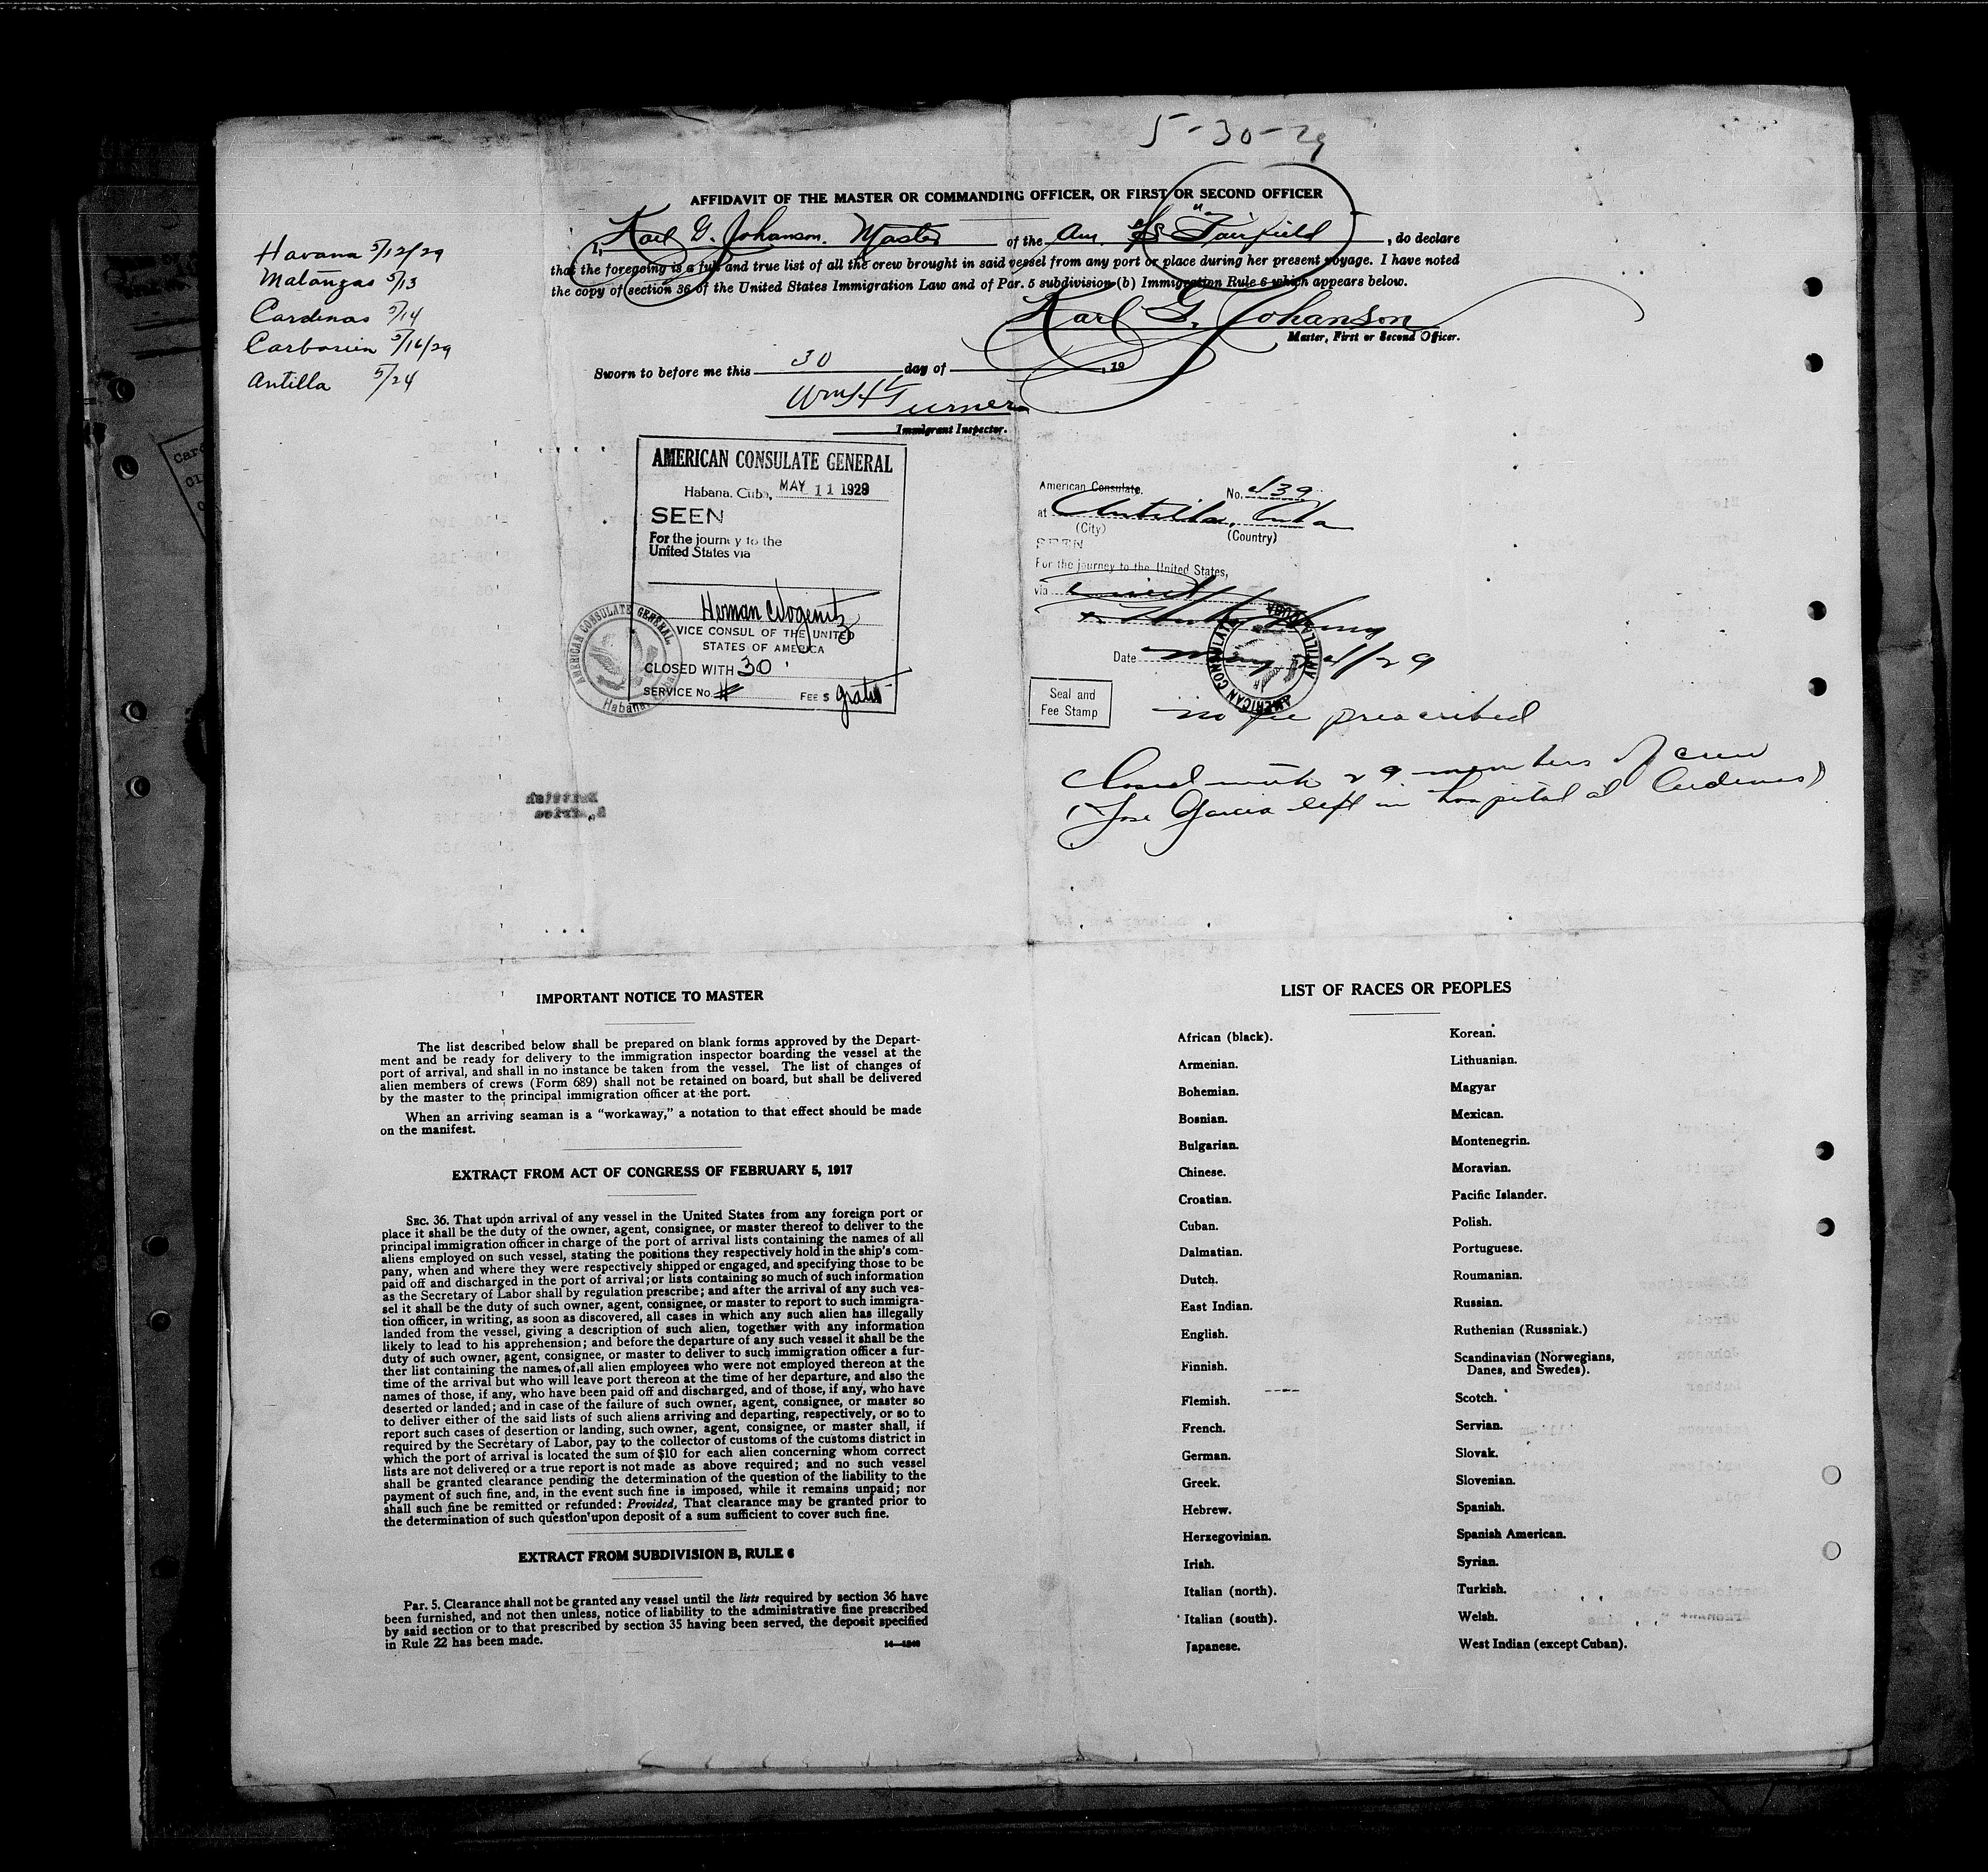 5-30-29
AFFIDAVIT OF THE MASTER OR COMMANDING OFFICER, OR FIRST OR SECOND OFFICER
I, Karl G. Johanson. Master of the Am. SS "Fairfield", do declare
that the foregoing is a full and true list of all the crew brought in said vessel from any port or place during her present voyage. I have noted
the copy of section 36 of the United States Immigration Law and of Par. 5 subdivision (b) Immigration Rule 6 which appears below.
Karl G. Johanson
Master, First or Second Officer.
Sworn to before me this 30 day of , 19
Wm H Turner
Immigrant Inspector.
Havana 5/12/29
Matanzas 5/13
Cardenas 5/14
Carbarien 5/16/29
Antilla 5/24
AMERICAN CONSULATE GENERAL
Habana, Cuba, MAY 11 1929
SEEN
For the journey to the
United States via
Herman
VICE CONSUL OF THE UNITED
STATES OF AMERICA
CLOSED WITH 30
SERVICE No. # FEE $ gratis
AMERICAN CONSULATE GENERAL
Habana, Cuba
American Consulate.
No. 439
at Antilla, Cuba
(City) (Country)
SEEN
For the journey to the United States,
via direct
Date May 24/29
AMERICAN CONSULATE ANTILLA, CUBA
Seal and
Fee Stamp
no fee prescribed
Closed with 29 members of crew
(Jose Garcia left in hospital at Cardenas)
IMPORTANT NOTICE TO MASTER
The list described below shall be prepared on blank forms approved by the Depart-
ment and be ready for delivery to the immigration inspector boarding the vessel at the
port of arrival, and shall in no instance be taken from the vessel. The list of changes of
alien members of crews (Form 689) shall not be retained on board, but shall be delivered
by the master to the principal immigration officer at the port.
When an arriving seaman is a "workaway," a notation to that effect should be made
on the manifest.
EXTRACT FROM ACT OF CONGRESS OF FEBRUARY 5, 1917
SEC. 36. That upon arrival of any vessel in the United States from any foreign port or
place it shall be the duty of the owner, agent, consignee, or master thereof to deliver to the
principal immigration officer in charge of the port of arrival lists containing the names of all
aliens employed on such vessel, stating the positions they respectively hold in the ship's com-
pany, when and where they were respectively shipped or engaged, and specifying those to be
paid off and discharged in the port of arrival; or lists containing so much of such information
as the Secretary of Labor shall by regulation prescribe; and after the arrival of any such ves-
sel it shall be the duty of such owner, agent, consignee, or master to report to such immigra-
tion officer, in writing, as soon as discovered, all cases in which any such alien has illegally
landed from the vessel, giving a description of such alien, together with any information
likely to lead to his apprehension; and before the departure of any such vessel it shall be the
duty of such owner, agent, consignee, or master to deliver to such immigration officer a fur-
ther list containing the names of all alien employees who were not employed thereon at the
time of the arrival but who will leave port thereon at the time of her departure, and also the
names of those, if any, who have been paid off and discharged, and of those, if any, who have
deserted or landed; and in case of the failure of such owner, agent, consignee, or master so
to deliver either of the said lists of such aliens arriving and departing, respectively, or so to
report such cases of desertion or landing, such owner, agent, consignee, or master shall, if
required by the Secretary of Labor, pay to the collector of customs of the customs district in
which the port of arrival is located the sum of $10 for each alien concerning whom correct
lists are not delivered or a true report is not made as above required; and no such vessel
shall be granted clearance pending the determination of the question of the liability to the
payment of such fine, and, in the event such fine is imposed, while it remains unpaid; nor
shall such fine be remitted or refunded: Provided, That clearance may be granted prior to
the determination of such question upon deposit of a sum sufficient to cover such fine.
EXTRACT FROM SUBDIVISION B, RULE 6
Par. 5. Clearance shall not be granted any vessel until the lists required by section 36 have
been furnished, and not then unless, notice of liability to the administrative fine prescribed
by said section or to that prescribed by section 35 having been served, the deposit specified
in Rule 22 has been made.
LIST OF RACES OR PEOPLES
African (black).
Armenian.
Bohemian.
Bosnian.
Bulgarian.
Chinese.
Croatian.
Cuban.
Dalmatian.
Dutch.
East Indian.
English.
Finnish.
Flemish.
French.
German.
Greek.
Hebrew.
Herzegovinian.
Irish.
Italian (north).
Italian (south).
Japanese.
Korean.
Lithuanian.
Magyar
Mexican.
Montenegrin.
Moravian.
Pacific Islander.
Polish.
Portuguese.
Roumanian.
Russian.
Ruthenian (Russniak.)
Scandinavian (Norwegians,
Danes, and Swedes).
Scotch.
Servian.
Slovak.
Slovenian.
Spanish.
Spanish American.
Syrian.
Turkish.
Welsh.
West Indian (except Cuban).